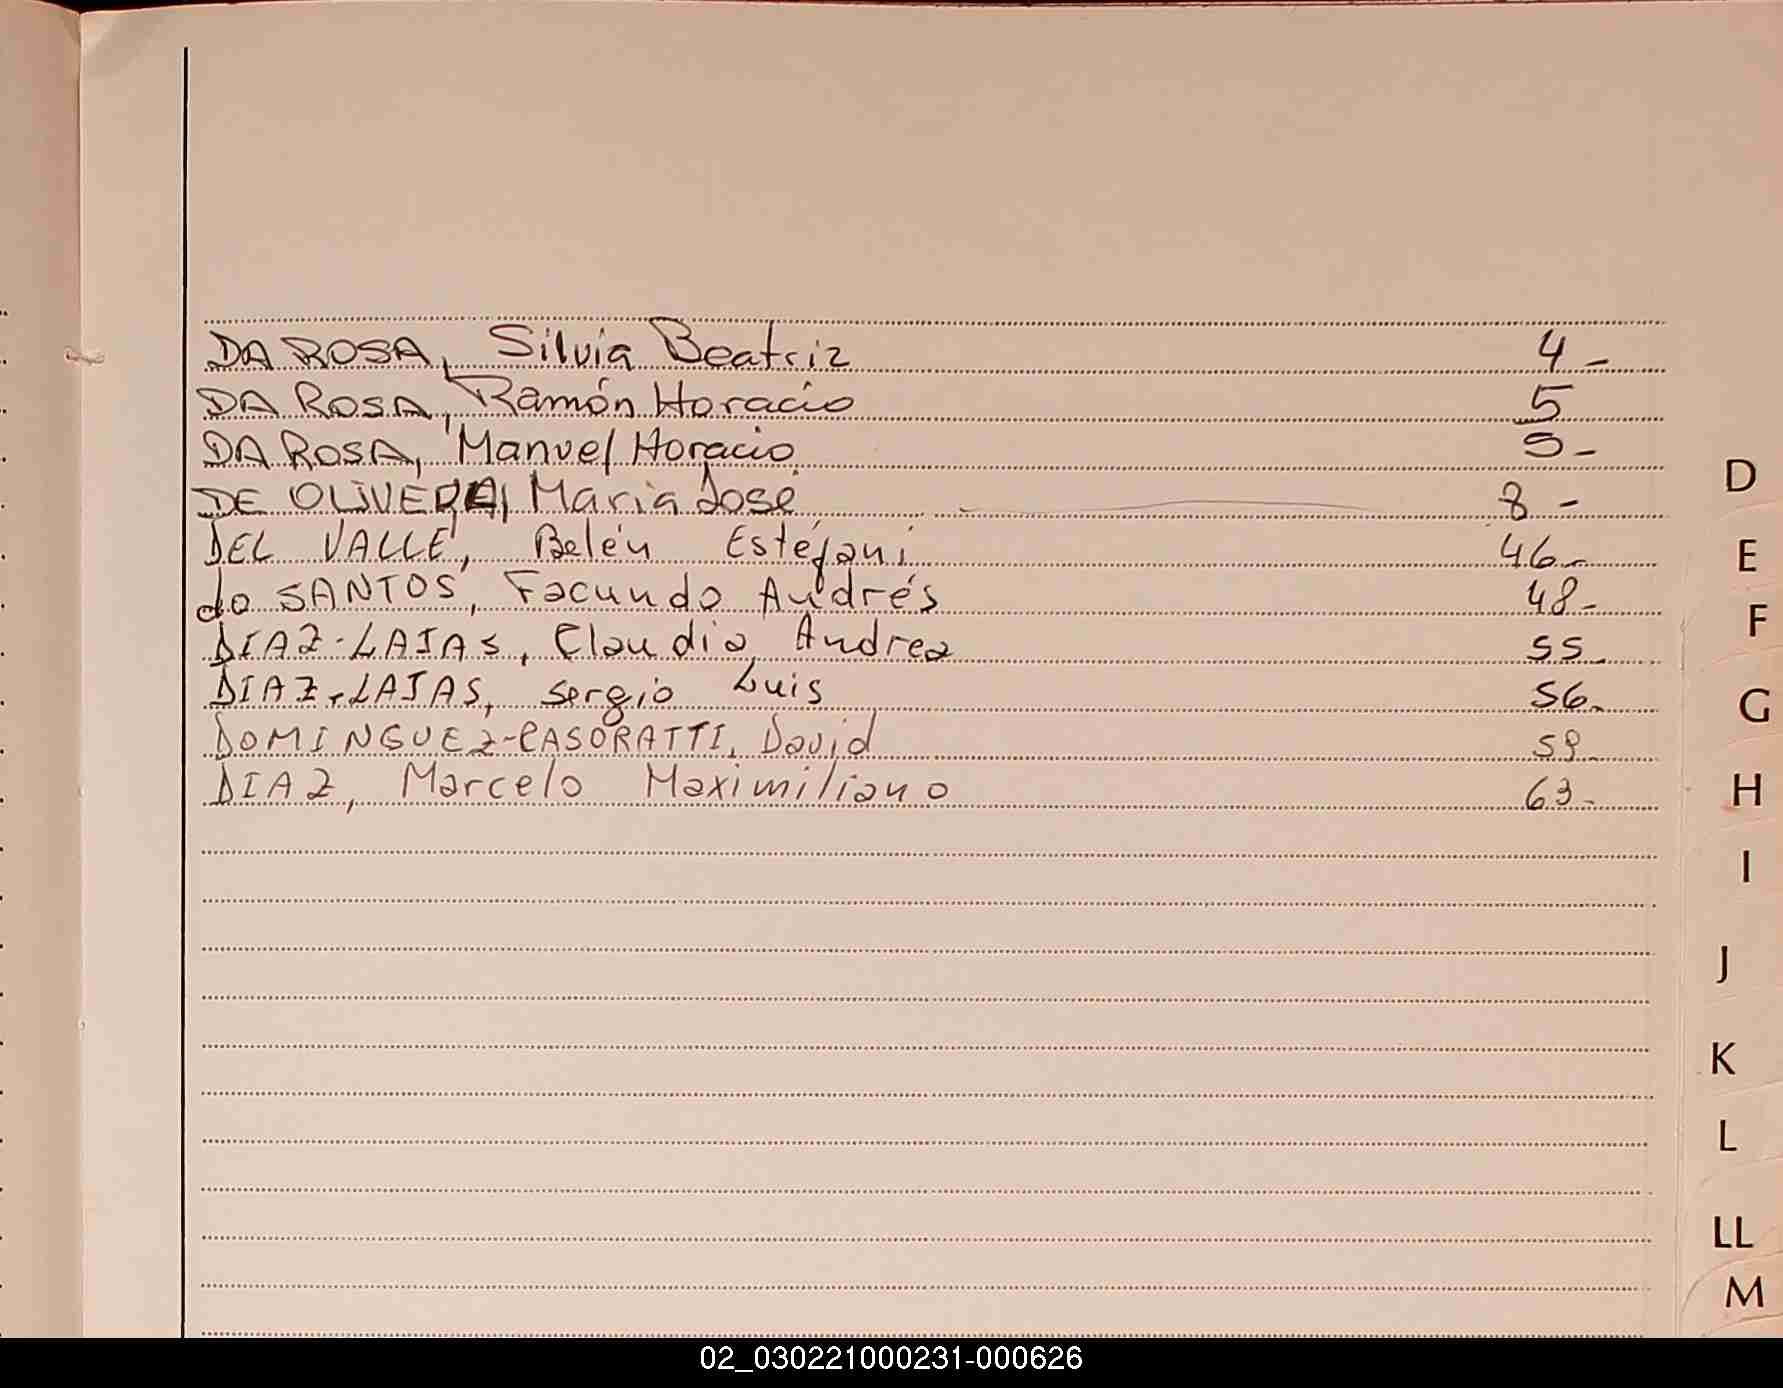 DA ROSA, Silvia Beatriz 4-
DA ROSA, Ramón Horacio 5
DA ROSA, Manuel Horacio 5-
DE OLIVERA, Maria José 8-
DEL VALLE, Belén Estéfani 46-
do SANTOS, Facundo Andrés 48-
DIAZ-LAJAS, Claudia Andrea 55-
DIAZ-LAJAS, Sergio Luis 56-
DOMINGUEZ-CASORATTI, David 59-
DIAZ, Marcelo Maximiliano 63-
D
E
F
G
H
I
J
K
L
LL
M
02_030221000231-000626